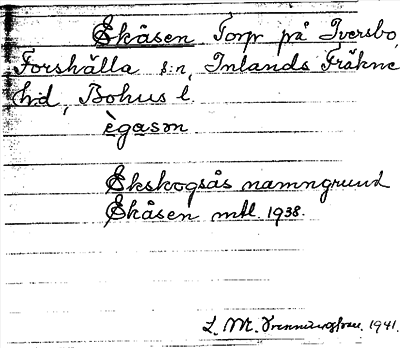 Ekåsen Torp på Iversbo,
Forshälla s:n, Inlands Fräkne
hd, Bohus l.
ègason
Ekskogsås namngrund
Ekåsen mtl. 1938.
L. M. 1941.